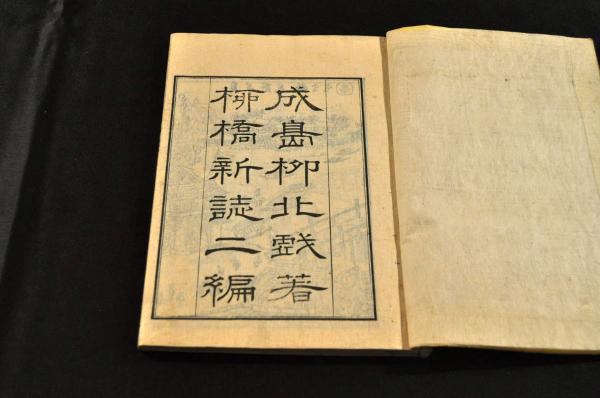 成島柳北戲著
柳橋新誌二編